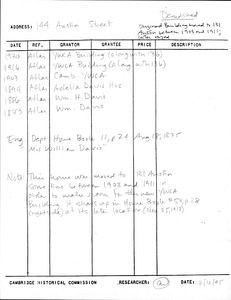 Demolished
ADDRESS: 144 Austin Street
Original Building moved to 131
Austin between 1903 and 1911;
DATE REF. GRANTOR GRANTEE PRICE DESCRIPTION
1930 Atlas YWCA Building (along with 136)
1916 Atlas YWCA Building (along with 136)
1903 Atlas Camb YWCA
1894 Atlas Adelia Davis Hse
1886 Atlas Wm. H. Davis
1873 Atlas Wm. Davis
Eng. Dept. House Book 11, p.24 Aug 18, 1875
Mrs William Davis"
Note This house was moved to 131 Austin
some time between 1903 and 1911 in
order to make room for the new YWCA
Building. It shows up in House Book #53, p.28
(right side) at its late location
CAMBRIDGE HISTORICAL COMMISSION RESEARCHER: DATE: